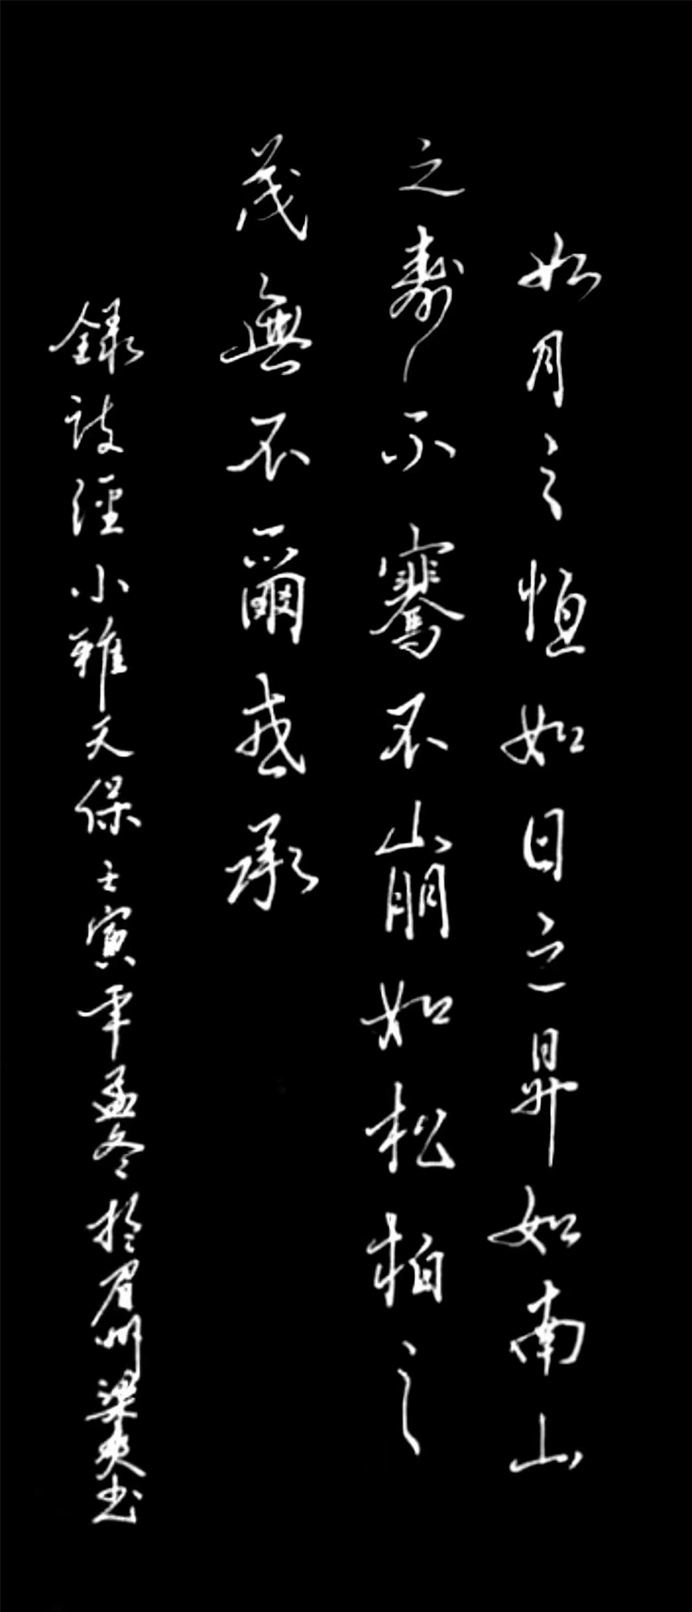 如月之恒如日之昇如南山
之壽不騫不崩如松柏之
茂無不爾或承
錄詩經小雅天保壬寅年孟冬於眉州梁爽書